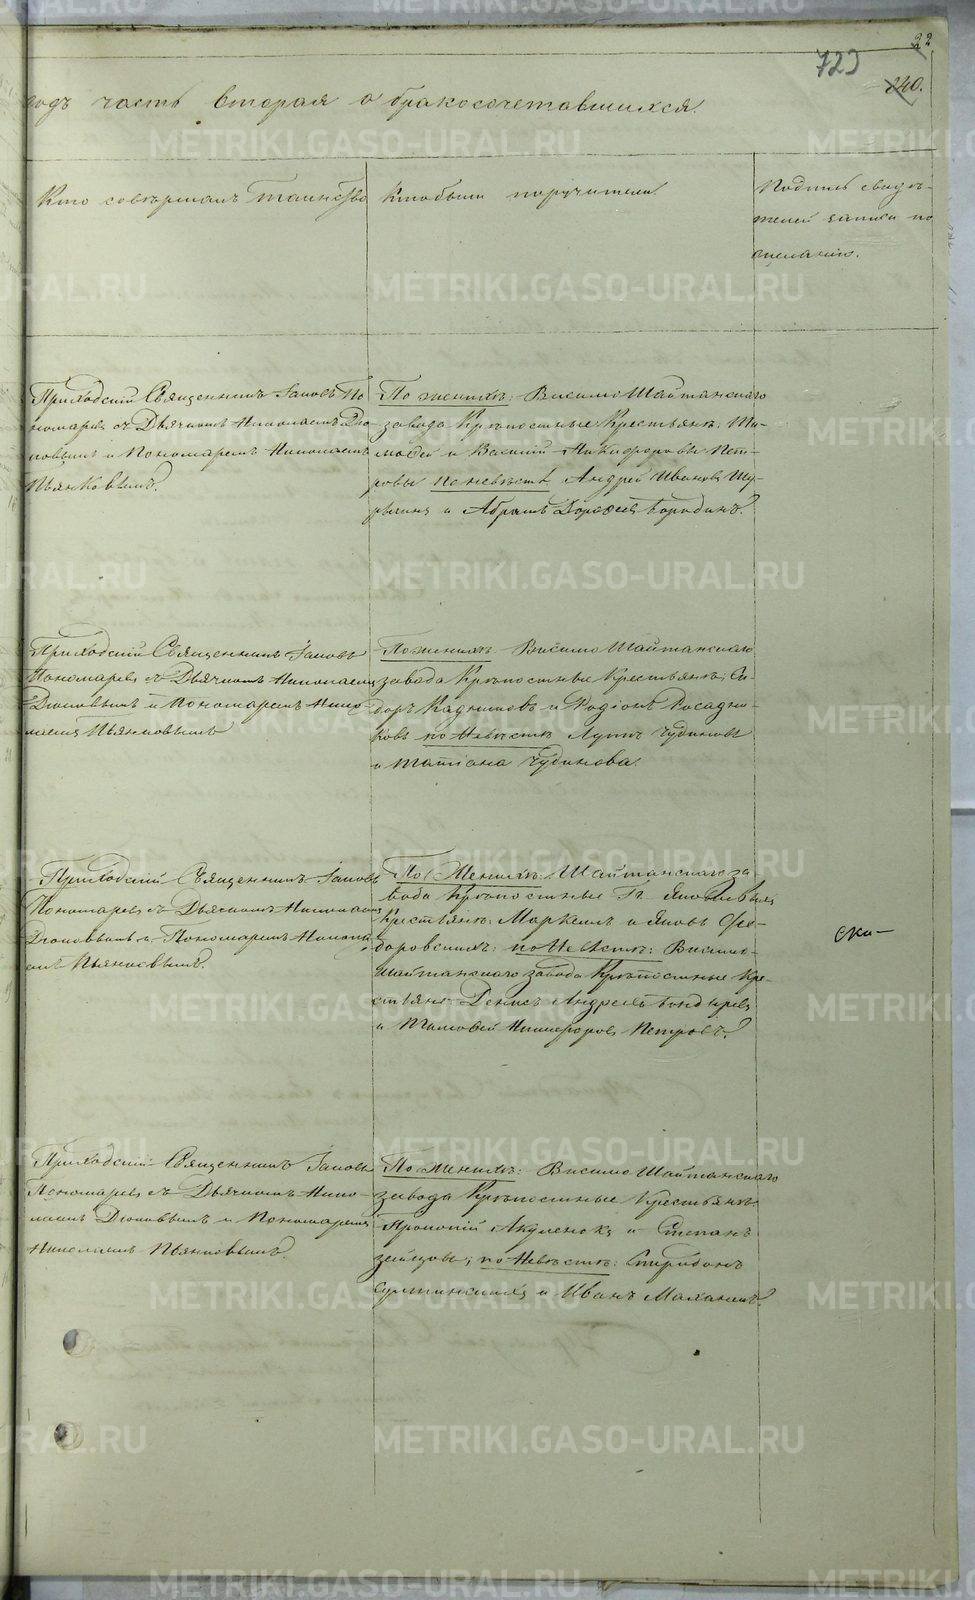 22
723
240.
годъ часть вторая о бракосочетавшихся.
Кто совершалъ таинство
Кто были поручители.
Подпись свидѣ-
телей записи по
желанію.
Приходскій Священникъ Іаковъ По
номаревъ съ Дьячкомъ Николаемъ Дю
ковымъ и Пономаремъ Николаемъ
Пьянковымъ.
По женихѣ: Висимо Шайтанскаго
завода Крѣпостные Крестьяне: Ти-
мофей и Василій Никифоровы Пет-
ровы по невѣстѣ Андрей Ивановъ
и Абрамъ Дорофеевъ Бородинъ.
Приходскій Священникъ Іаковъ
Пономаревъ съ Дьячкомъ Николаемъ
Дюковымъ и Пономаремъ Нико-
лаемъ Пьянковымъ
По женихѣ Висимо Шайтанскаго
завода Крѣпостные Крестьяне: Си-
доръ Кадниковъ и Родіонъ Росадни-
ковъ по Невѣстѣ Лупъ Чудиновъ
и Татіана Чудинова.
Приходскій Священникъ Іаковъ
Пономаревъ съ Дьячкомъ Николаемъ
Дюковымъ и Пономаремъ Никола-
емъ Пьянковымъ.
По Женихѣ: Шайтанскаго за
вода Крѣпостные Г. Яковлевыхъ
Крестьяне: Маркелъ и Яковъ Фео-
доровскихъ: по Невѣстѣ: Висимо-
шайтанскаго завода Крѣпостные Кре-
стьяне Денисъ Андреевъ Бондыревъ
и Тимофей Никифоровъ Петровъ.
Ска-
Приходскій Священникъ Іаковъ
Пономаревъ съ Дьячкомъ Нико-
лаемъ Дюковымъ и Пономаремъ
Николаемъ Пьянковымъ.
По Женихѣ: Висимо Шайтанскаго
завода Крѣпостные Крестьяне
Прокопій и Степанъ
Зайцовы; по Невѣстѣ: Спиридонъ
и Иванъ
METRIKI.GASO-URAL.RU